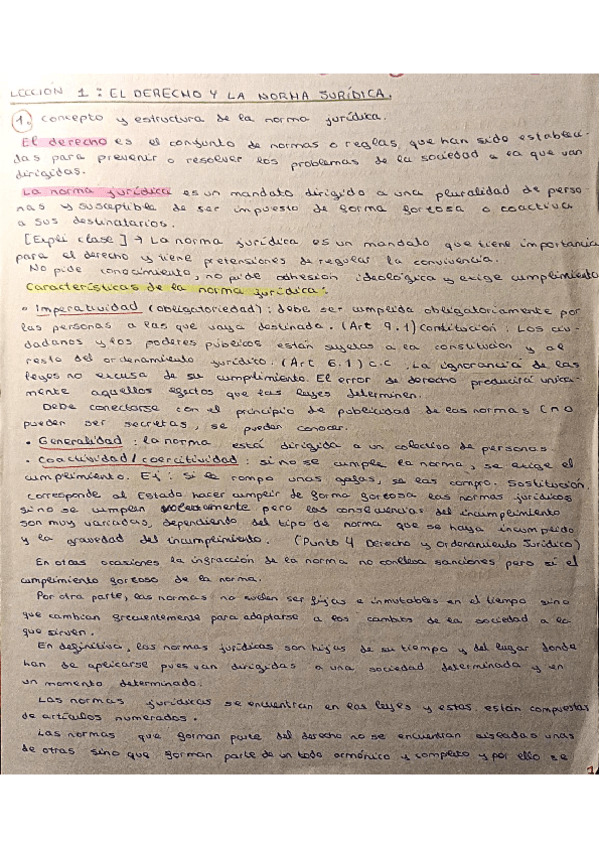 LECCIÓN 1: EL DERECHO Y LA NORMA JURÍDICA.
1. Concepto y estructura de la norma jurídica.
El derecho es el conjunto de normas o reglas, que han sido estableci-
das para prevenir o resolver los problemas de la sociedad a la que van
dirigidas.
La norma jurídica es un mandato dirigido a una pluralidad de perso-
nas y susceptible de ser impuesto de forma forzosa o coactiva
a sus destinatarios.
[Expli clase] → La norma jurídica es un mandato que tiene importancia
para el derecho y tiene pretensiones de regular la convivencia.
No pide conocimiento, no pide adhesión ideológica y exige cumplimiento
Características de la norma jurídica:
• Imperatividad (obligatoriedad): debe ser cumplida obligatoriamente por
las personas a las que vaya destinada. (Art 9.1) constitución: Los ciu-
dadanos y los poderes públicos están sujetos a la constitución y al
resto del ordenamiento jurídico. (Art 6.1) C.C. La ignorancia de las
leyes no excusa de su cumplimiento. El error de derecho producirá única-
mente aquellos efectos que las leyes determinen.
Debe conectarse con el principio de publicidad de las normas (no
pueden ser secretas, se pueden conocer.
• Generalidad: la norma está dirigida a un colectivo de personas
• Coactividad/coercitividad: si no se cumple la norma, se exige el
cumplimiento. Ej: si le rompo unas gafas, se las compro. Sustitución.
corresponde al Estado hacer cumplir de forma forzosa las normas jurídicas
si no se cumplen voluntariamente pero las consecuencias del incumplimiento
son muy variadas, dependiendo del tipo de norma que se haya incumplido
y la gravedad del incumplimiento. (Punto 4 Derecho y Ordenamiento Jurídico)
En otras ocasiones la infracción de la norma no conlleva sanciones pero sí el
cumplimiento forzoso de la norma.
Por otra parte, las normas no suelen ser fijas e inmutables en el tiempo sino
que cambian frecuentemente para adaptarse a los cambios de la sociedad a la
que sirven.
En definitiva, las normas jurídicas son hijas de su tiempo y del lugar donde
han de aplicarse pues van dirigidas a una sociedad determinada y en
un momento determinado.
Las normas jurídicas se encuentran en las leyes y estas están compuestas
de artículos numerados.
Las normas que forman parte del derecho no se encuentran aisladas unas
de otras sino que forman parte de un todo armónico y completo y por ello se
1